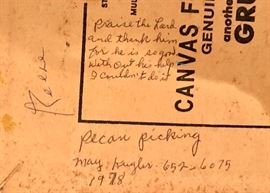 Praise the Lord
and thank him
For he is so good
with out his help
I couldn't do it
CANVAS F
GENUI
anothe
GRU
ST
MUL
Pecan picking
May 652-6075
1978